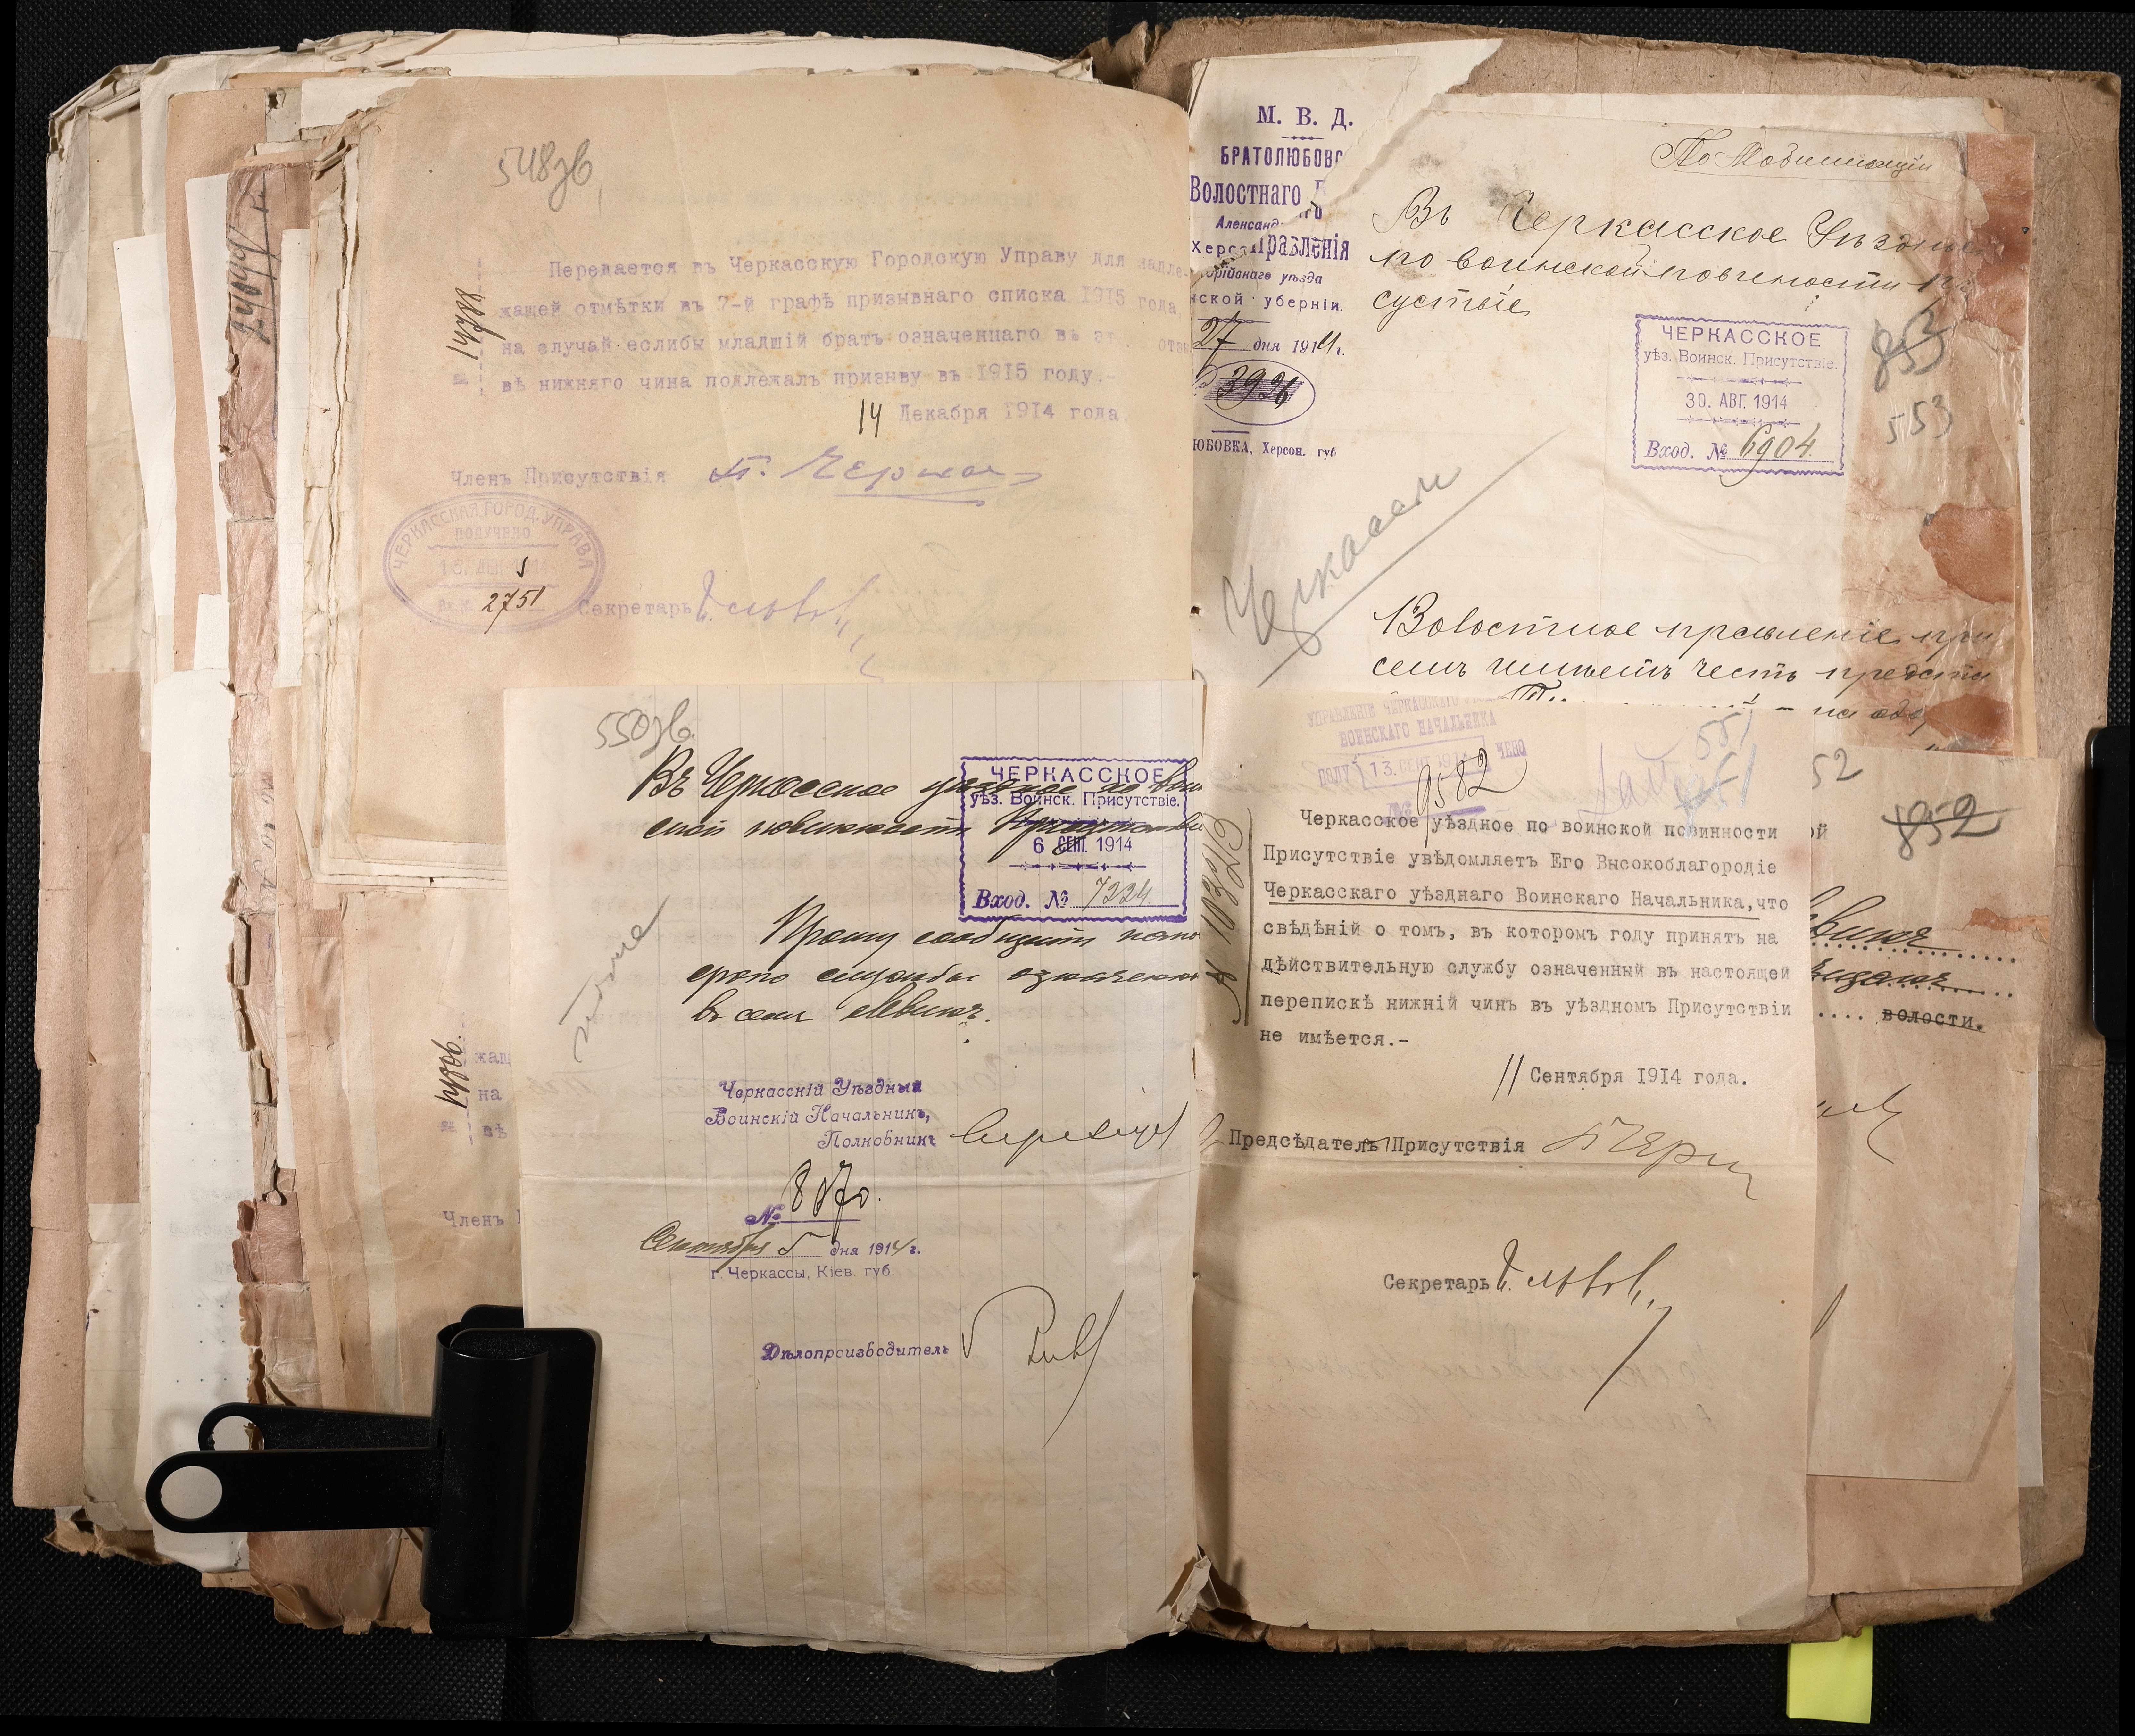 548зв
Передается въ Черкасскую Городскую Управу для надле-
жащей отмѣтки въ 7-й графѣ призывнаго списка 1915 года
на случай еслибы младшій братъ означеннаго въ
въ нижняго чина подлежалъ призыву въ 1915 году.-
14 Декабря 1914 года.
№ 14788
Членъ Присутствія
ЧЕРКАССКАЯ ГОРОД. УПРАВА
ПОЛУЧЕНО
2751
Секретарь
24099
14006
жащ
на
въ
Членъ
550зв.
Въ Черкасское уѣздное по воин
ской повинности Присутствіе
ЧЕРКАССКОЕ
уѣз. Воинск. Присутствіе.
6 СЕП. 1914
Вход. № 7224
Прошу сообщить
срокъ службы означенна
въ семъ
Черкасскій Уѣздный
Воинскій Начальникъ,
Полковникъ
№ 8070.
Сентября 5 дня 1914 г.
г. Черкассы, Кіев. губ.
Дѣлопроизводитель
М. В. Д.
БРАТОЛЮБОВС
Волостного
Александ
Херс
Правленія
рійскаго уѣзда
нской губерніи.
27 дня 1914 г.
3926
ЮБОВКА, Херсон. губ
По Мобилизаціи
Въ Черкасское Уѣздное
по воинской повинности П
сутствіе
ЧЕРКАССКОЕ
уѣз. Воинск. Присутствіе.
30. АВГ. 1914
Вход. № 6904.
853
553
Черкассы
Волостное правленіе при
семъ имѣетъ честь предста
на
УПРАВЛЕНІЕ ЧЕРКАССКАГО
ВОИНСКАГО НАЧАЛЬНИКА
ПОЛУЧЕНО
13. СЕН. 1914
№ 9582
551
851
№ 10323
Черкасское уѣздное по воинской повинности
Присутствіе увѣдомляетъ Его Высокоблагородіе
Черкасскаго уѣзднаго Воинскаго Начальника, что
свѣдѣній о томъ, въ которомъ году принятъ на
дѣйствительную службу означенный въ настоящей
перепискѣ нижній чинъ въ уѣздномъ Присутствіи
не имѣется.-
11 Сентября 1914 года.
Предсѣдатель Присутствія
Секретарь
52
852
ой
волости.